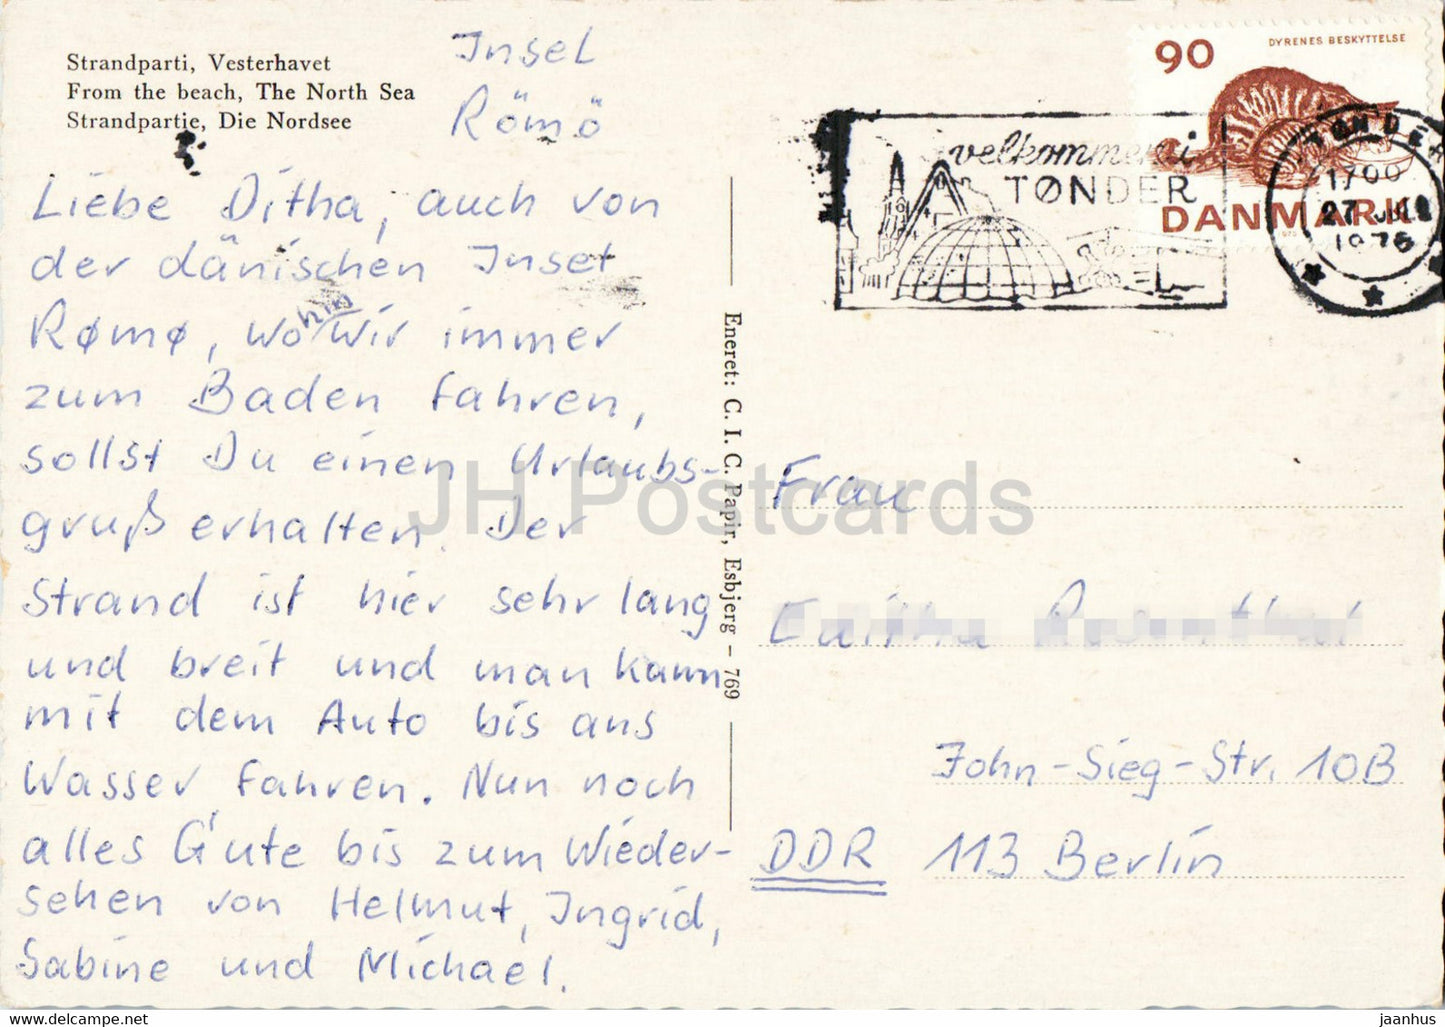 Strandparti, Vesterhavet
From the beach, The North Sea
Strandpartie, Die Nordsee
Insel
Römö
Liebe Ditha, auch von
der dänischen Insel
Rømø, wo hin wir immer
zum Baden fahren,
sollst Du einen Urlaubs-
gruß erhalten. Der
Strand ist hier sehr lang
und breit und man kann
mit dem Auto bis ans
Wasser fahren. Nun noch
alles Gute bis zum Wieder-
sehen von Helmut, Ingrid,
Sabine und Michael.
Eneret: C. I. C. Papir, Esbjerg - 769
90
DYRENES BESKYTTELSE
DANMARK
velkommen i
TØNDER
TØNDER
1700
27 JUL
1976
Frau
John-Sieg-Str. 10B
DDR 113 Berlin
JH Postcards
www.delcampe.net
jaanhus